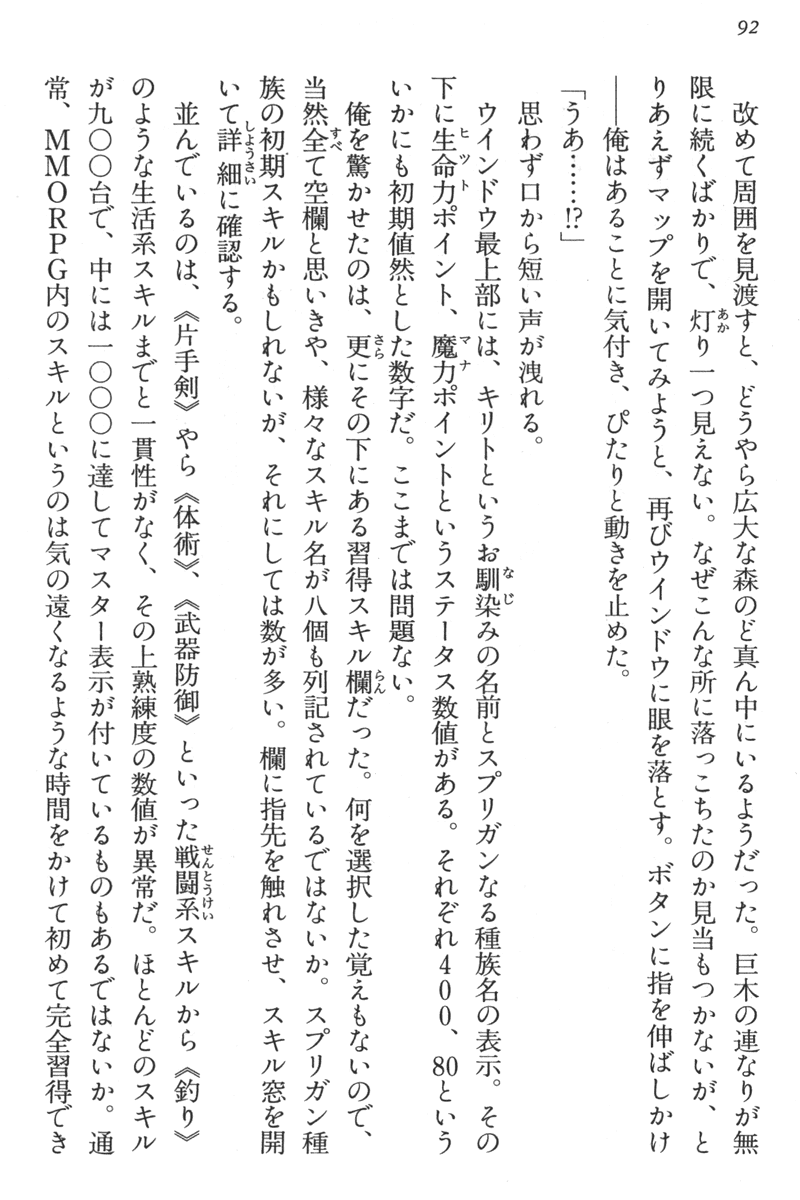 92
改めて周囲を見渡すと、どうやら広大な森のど真ん中にいるようだった。巨木の連なりが無
限に続くばかりで、灯り一つ見えない。なぜこんな所に落っこちたのか見当もつかないが、と
りあえずマップを開いてみようと、再びウインドウに眼を落とす。ボタンに指を伸ばしかけ
――俺はあることに気付き、ぴたりと動きを止めた。
「うあ……!?」
思わず口から短い声が洩れる。
ウインドウ最上部には、キリトというお馴染みの名前とスプリガンなる種族名の表示。その
下に生命力ポイント、魔力ポイントというステータス数値がある。それぞれ400、80という
いかにも初期値然とした数字だ。ここまでは問題ない。
俺を驚かせたのは、更にその下にある習得スキル欄だった。何を選択した覚えもないので、
当然全て空欄と思いきや、様々なスキル名が八個も列記されているではないか。スプリガン種
族の初期スキルかもしれないが、それにしては数が多い。欄に指先を触れさせ、スキル窓を開
いて詳細に確認する。
並んでいるのは、《片手剣》やら《体術》、《武器防御》といった戦闘系スキルから《釣り》
のような生活系スキルまでと一貫性がなく、その上熟練度の数値が異常だ。ほとんどのスキル
が九〇〇台で、中には一〇〇〇に達してマスター表示が付いているものもあるではないか。通
常、MMORPG内のスキルというのは気の遠くなるような時間をかけて初めて完全習得でき